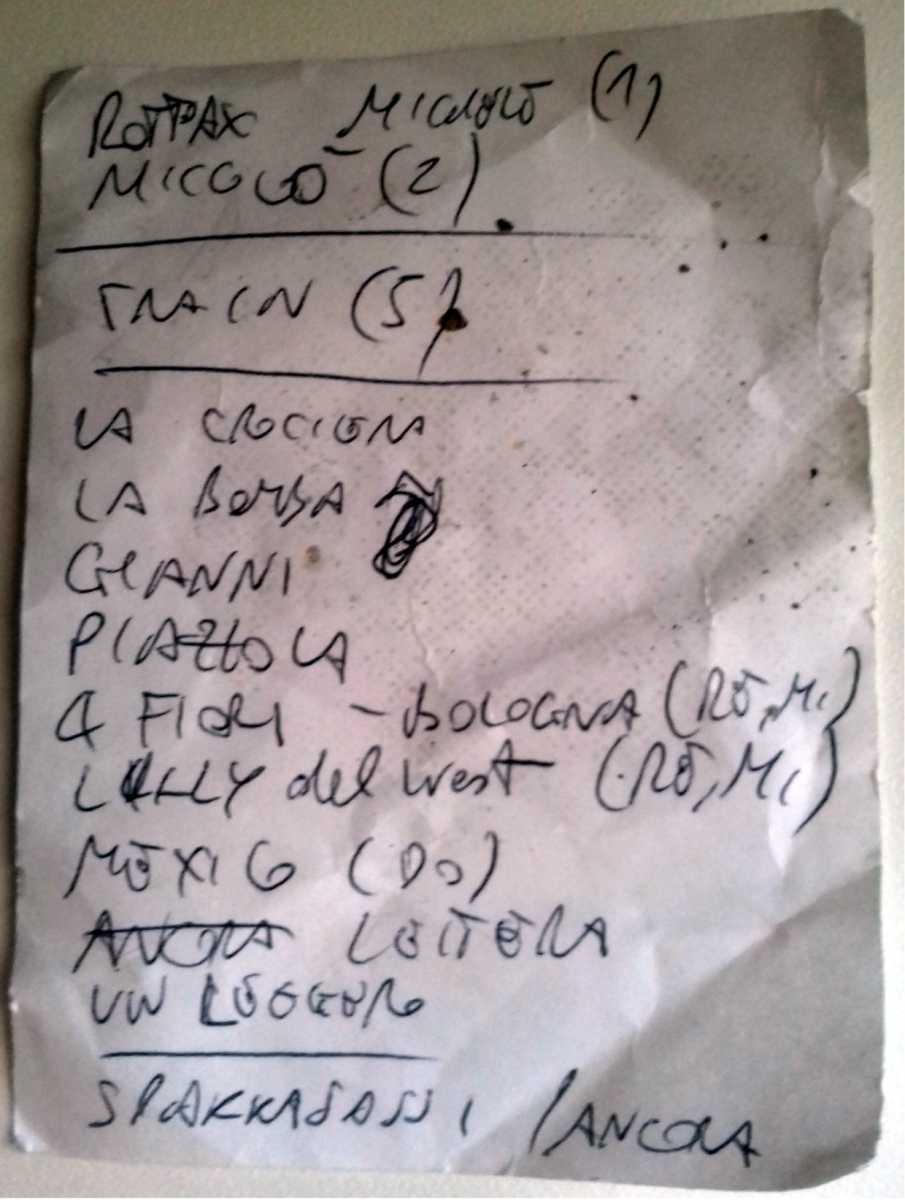 MICCOLÒ (1)
MICCOLÒ (2)
TRAIN (5)
LA CROCIERA
LA BOMBA
GIANNI
PIAZZOLA
4 FIORI - BOLOGNA (RE, Mi)
LILLY del West (RE, Mi)
MEXICO (DO)
ANCORA LETTERA
UN LEGGERO
SPAKKASASSI / ANCORA